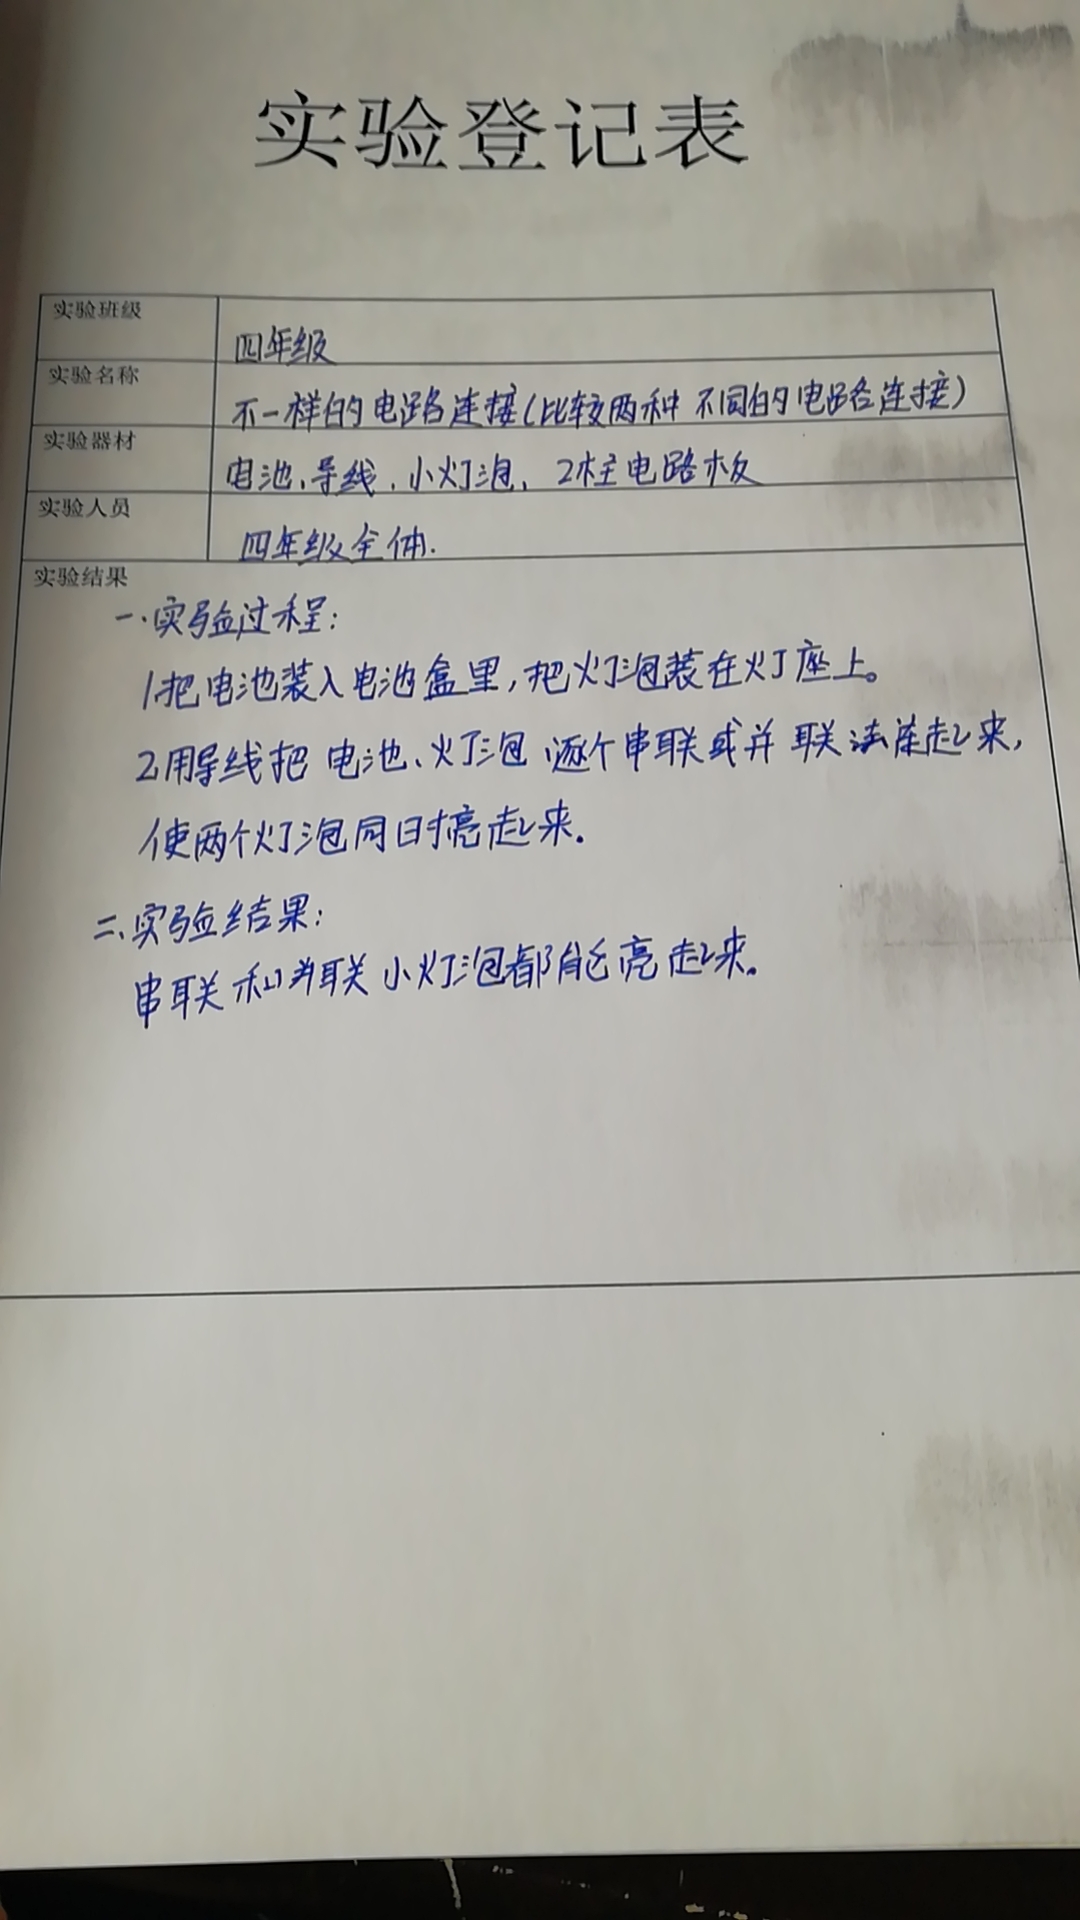 实验登记表
实验班级
四年级
实验名称
不一样的电路连接(比较两种不同的电路连接)
实验器材
电池、导线、小灯泡、2柱电路板
实验人员
四年级全体.
实验结果
一.实验过程:
1.把电池装入电池盒里,把灯泡装在灯座上。
2.用导线把电池、灯泡逐个串联或并联连起来,
使两个灯泡同时亮起来.
二、实验结果:
串联和并联小灯泡都能亮起来。